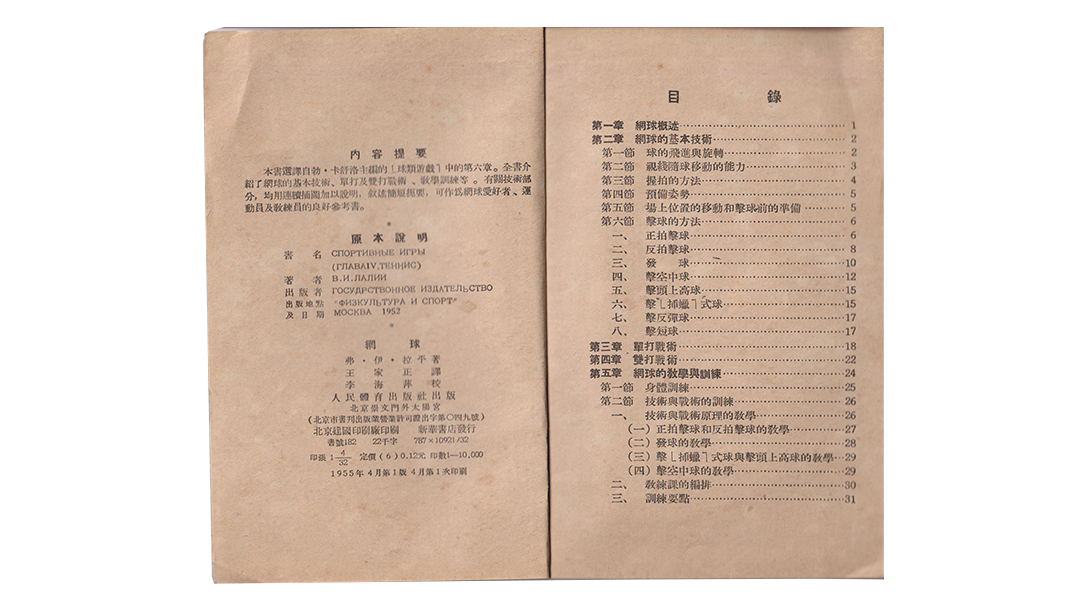 內容提要
本書選譯自勃·卡舒洛主編的「球類遊戲」中的第六章。全書介
紹了網球的基本技術、單打及雙打戰術、教學訓練等。有關技術部
分，均用連續插圖加以說明，敘述簡短扼要，可作爲網球愛好者、運
動員及教練員的良好參考書。
原本說明
書名 СПОРТИВНЫЕ ИГРЫ
(ГЛАВАIV.ТЕННИС)
著者 В.И.ЛАПИН
出版者 ГОСУДРСТВОННОЕ ИЗДАТЕЛЬСТВО
出版地點 "ФИЗКУЛЬТУРА И СПОРТ"
及日期 МОСКВА 1952
網球
弗·伊·拉平著
王家正譯
李海萍校
人民體育出版社出版
北京崇文門外太陽宮
(北京市書刊出版業營業許可證出字第〇四九號)
北京建國印刷廠印刷 新華書店發行
書號182 22千字 787×10921/32
印張 1 4/32 定價(6)0.12元 印數1—10,000
1955年4月第1版 4月第1次印刷
目錄
第一章 網球概述 1
第二章 網球的基本技術 2
第一節 球的飛進與旋轉 2
第二節 視綫隨球移動的能力 3
第三節 握拍的方法 4
第四節 預備姿勢 5
第五節 場上位置的移動和擊球前的準備 5
第六節 擊球的方法 6
一、 正拍擊球 6
二、 反拍擊球 8
三、 發球 10
四、 擊空中球 12
五、 擊頭上高球 15
六、 擊「插蠟」式球 15
七、 擊反彈球 17
八、 擊短球 17
第三章 單打戰術 18
第四章 雙打戰術 22
第五章 網球的教學與訓練 24
第一節 身體訓練 25
第二節 技術與戰術的訓練 26
一、 技術與戰術原理的教學 26
(一)正拍擊球和反拍擊球的教學 27
(二)發球的教學 28
(三)擊「插蠟」式球與擊頭上高球的教學 29
(四)擊空中球的教學 29
二、 教練課的編排 30
三、 訓練要點 31